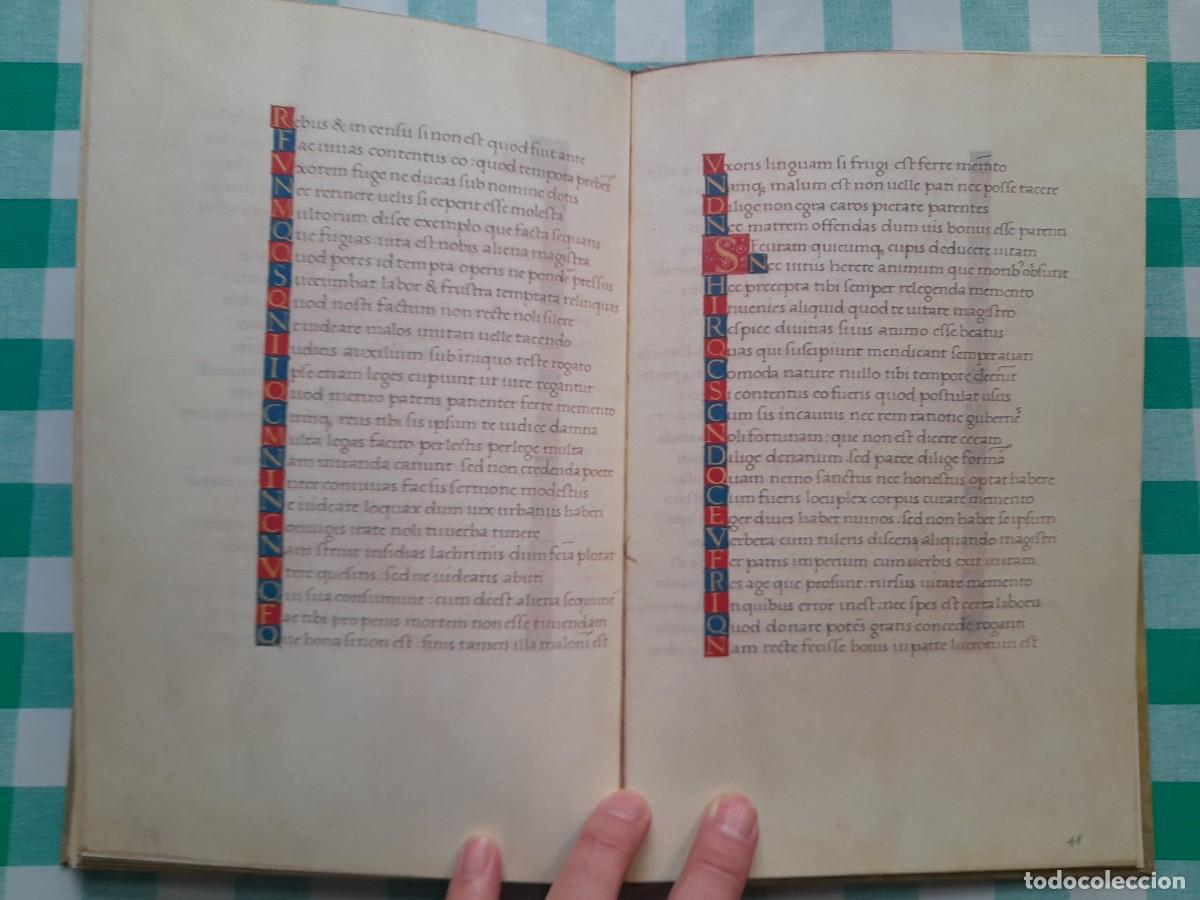 Rebus & in censu si non est quod fuit ante
Fac uiuas contentus eo: quod tempora prebēt
Vxorem fuge ne ducas sub nomine dotis
Nec retinere uelis si ceperit esse molesta
Multorum disce exemplo que facta sequaris
Que fugias: uita est nobis aliena magistra
Quod potes id tempta operis ne pondē pressus
Succumbat labor & frustra temptata relinquas
Quod nosti factum non recte noli silere
Ne uideare malos imitari uelle tacendo
Iudicis auxilium sub iniquo teste rogato
Ipse etiam leges cupiunt ut iure regantur
Quod merito pateris patienter ferre memento
Cumq; reus tibi sis ipsum te iudice damna
Multa legas facito perlectis perlege multa
Nam miranda canunt .sed non credenda poete
Inter conuiuas fac sis sermone modestus
Ne uideare loquax dum uix urbanus haberi
Coniugis irate noli tu uerba timere
Nam struit insidias lachrimis dum feīa plorat
Vtere quesitis .sed ne uidearis abuti
Qui sua consumunt: cum deest aliena sequunt̄
Fac tibi proponis mortem non esse timendam
Que bona si non est: finis tamen illa maloꝝ est
Vxoris linguam si frugi est ferre memēto
Namq; malum est non uelle pati nec posse tacere
Dilige non egra caros pietate parentes
Nec matrem offendas dum uis bonus esse parenti
Securam quicumq; cupis deducere uitam
Nec uitiis herere animum que morib᾿ obsunt
Hec precepta tibi semper relegenda memento
Inuenies aliquid quod te uitare magistro
Respice diuitias si uis animo esse beatus
Quas qui suscipiunt mendicant semper auari
Comoda nature nullo tibi tempore deerūt
Si contentus eo fueris quod postulat usus
Cum sis incautus nec rem ratione gubernes
Noli fortunam: que non est dicere cecam
Dilige denarium .sed parce dilige formā
Quam nemo sanctus nec honestus optat habere
Cum fueris locuplex corpus curare memento
Eger diues habet numos :sed non habet se ipsum
Verbera cum tuleris discens aliquando magistri
Fer patris imperium cum uerbis exit in iram
Res age que prosunt: rursus uitare memento
In quibus error inest: nec spes est certa laboris
Quod donare potes gratis concede roganti
Nam recte fecisse bonis in parte lucrorum est
48
todocoleccion